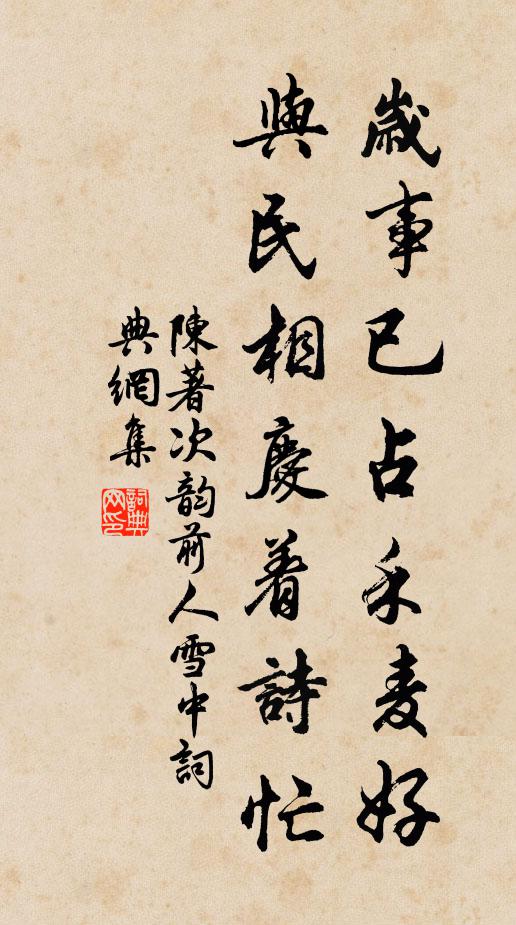 歲事已占禾麦好
與民相慶着詩忙
陳著次韵前人雪中詞
典網集
詞典网印